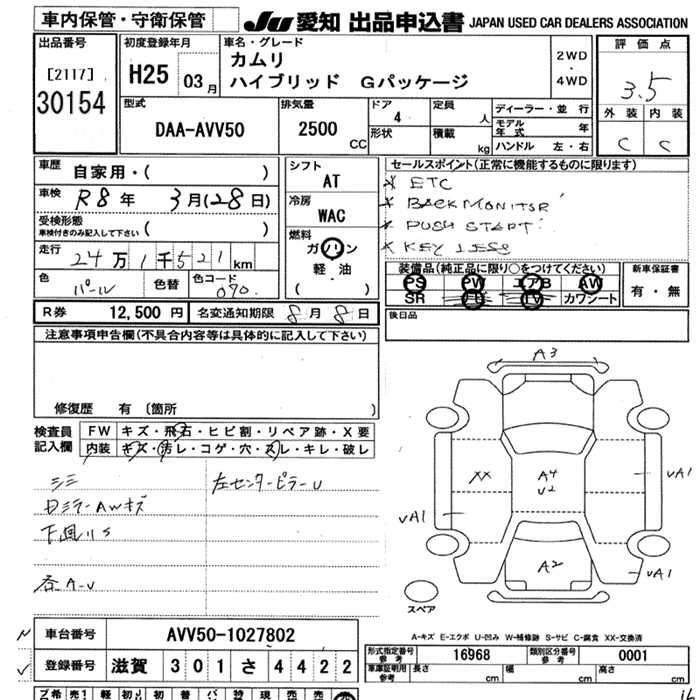 車内保管・守衛保管
JU 愛知 出品申込書 JAPAN USED CAR DEALERS ASSOCIATION
出品番号
[2117]
30154
初度登録年月
H25 03月
車名・グレード
カムリ
ハイブリッド Gパッケージ
2WD
・
4WD
評価点
3.5
外装 内装
C C
型式
DAA-AVV50
排気量
2500
CC
ドア
4
定員
人
形状
積載
kg
ディーラー・並行
モデル年式 年
ハンドル 左・右
車歴
自家用・( )
車検
R8年 3月(28日)
受検形態
車検付きのみ記入して下さい ( )
走行
24万1千521km
色
パール
色替
色コード
070
シフト
AT
冷房
WAC
燃料
ガソリン
軽・油
( )
セールスポイント(正常に機能するものに限ります)
* ETC
* BACK MONITOR
* PUSH START
* KEY LESS
装備品(純正品に限り○をつけてください)
PS PW エアB AW
SR ナビ TV カワシート
新車保証書
有・無
R券 12,500円
名変通知期限 8月8日
後日品
注意事項申告欄(不具合内容等は具体的に記入して下さい)
修復歴 有 〔箇所 〕
検査員記入欄
FW キズ・飛石・ヒビ割・リペア跡・X要
内装 キズ・汚レ・コゲ・穴・スレ・キレ・破レ
シミ
左センターピラーU
ロミラーAWキズ
下廻りS
各A-U
A3
XX
A4
U2
UA1
UA1
A2
UA1
スペア
A-キズ E-エクボ U-凹み W-補修跡 S-サビ C-腐食 XX-交換済
車台番号 AVV50-1027802
登録番号 滋賀 301 さ 4422
型式指定番号
参考
16968
類別区分番号
参考
0001
車庫証明用
参考
長さ cm 幅 cm 高さ cm